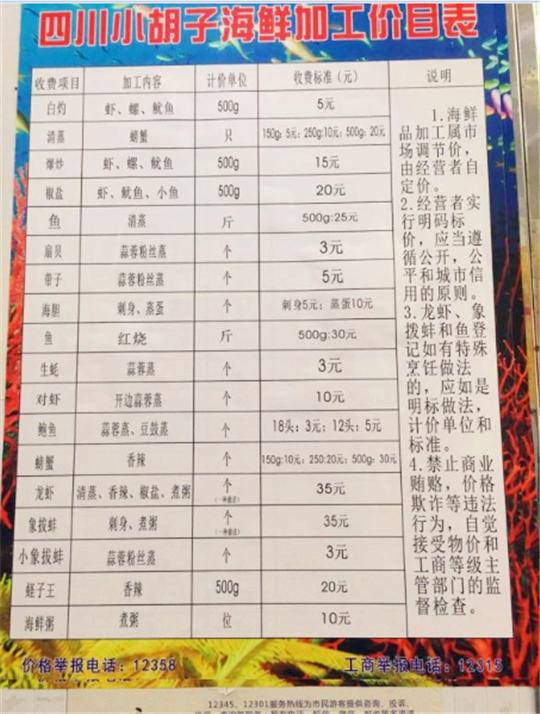 四川小胡子海鲜加工价目表
收费项目 加工内容 计价单位 收费标准(元) 说明
白灼 虾、螺、鱿鱼 500g 5元
清蒸 螃蟹 只 150g:5元;250g:10元;500g:20元
爆炒 虾、螺、鱿鱼 500g 15元
椒盐 虾、鱿鱼、小鱼 500g 20元
鱼 清蒸 斤 500g:25元
扇贝 蒜蓉粉丝蒸 个 3元
带子 蒜蓉粉丝蒸 个 5元
海胆 刺身、蒸蛋 个 刺身5元;蒸蛋10元
鱼 红烧 斤 500g:30元
生蚝 蒜蓉蒸 个 3元
对虾 开边蒜蓉蒸 个 10元
鲍鱼 蒜蓉蒸、豆鼓蒸 个 18头:3元;12头:5元
螃蟹 香辣 个 150g:10元;250:20元;500g:30元
龙虾 清蒸、香辣、椒盐、煮粥 个(一种做法) 35元
象拔蚌 刺身、煮粥 个(一种做法) 35元
小象拔蚌 蒜蓉粉丝蒸 个 3元
蛏子王 香辣 500g 20元
海鲜粥 煮粥 位 10元
1.海鲜
品加工属市
场调节价,
由经营者自
定价。
2.经营者实
行明码标
价,应当遵
循公开,公
平和城市信
用的原则。
3.龙虾、象
拨蚌和鱼登
记如有特殊
烹饪做法
的,应如是
明标做法,
计价单位和
标准。
4.禁止商业
贿赂,价格
欺诈等违法
行为,自觉
接受物价和
工商等级主
管部门的监
督检查。
价格举报电话:12358 工商举报电话:12315
12345、12301服务热线为市民游客提供咨询、投诉、